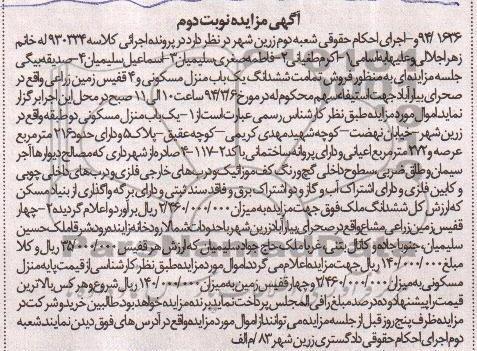 آگهی مزایده نوبت دوم
۹۴/۱۶۳۶- اجرای احکام حقوقی شعبه دوم زرین شهر در نظر دارد در پرونده اجرائی کلاسه ۹۳۰۳۳۴ له خانم
زهرا جلالی و علیه ۱- اکرم طغیانی ۲- فاطمه صغری سلیمیان ۳- اسماعیل سلیمیان ۴- صدیقه بیگی
جلسه مزایده ای به منظور فروش تمامت ششدانگ یک باب منزل مسکونی و ۴ قفیس زمین زراعی واقع در
صحرای بیارآباد جهت استیفاء سهم محکوم له در مورخ ۹۴/۳/۶ ساعت ۱۰ الی ۱۱ صبح در محل این اجرا برگزار
نماید اموال مورد مزایده طبق نظر کارشناس رسمی عبارت است از ۱- یک باب منزل مسکونی دو طبقه واقع در
زرین شهر - خیابان نهضت - کوچه شهید مهدی کریمی - کوچه عقیق - پلاک ۵ و دارای حدود ۲۱۶ متر مربع
عرصه و ۲۷۲ متر مربع اعیانی و دارای پروانه ساختمانی با کد ۲-۱۱۷-۴ صادره از شهرداری که مصالح دیوارها آجر
سیمان و طاق ضربی، سطوح داخلی گچ و رنگ، کف موزائیک و درب های خارجی فلزی و درب های داخلی چوبی
و کابین فلزی و دارای اشتراک آب و گاز و دو اشتراک برق و فاقد سند ثبتی و دارای برگه واگذاری از بنیاد مسکن
که ارزش کل ششدانگ ملک فوق جهت مزایده به میزان ۲/۴۶۰/۰۰۰/۰۰۰ ریال برآورد و اعلام گردیده ۲- چهار
قفیس زمین زراعی مشاع واقع در صحرای بیارآباد زرین شهر با حدودات شمالا رودخانه زاینده رود شرقا ملک حسین
سلیمیان، جنوبا جاده و کانال بتنی، غربا ملک حاج جواد سلیمیان که ارزش هر قفیس ۳۵/۰۰۰/۰۰۰ ریال و کلا
مبلغ ۱۴۰/۰۰۰/۰۰۰ ریال جهت مزایده اعلام می گردد اموال مورد مزایده طبق نظر کارشناسی از قیمت پایه منزل
مسکونی به میزان ۲/۴۶۰/۰۰۰/۰۰۰ و چهار قفیس زمین به میزان ۱۴۰/۰۰۰/۰۰۰ ریال شروع و هر کس بالاترین
قیمت را پیشنهاد و ده درصد مبلغ را فی المجلس پرداخت نماید برنده مزایده خواهد بود طالبین خرید و شرکت در
مزایده ظرف پنج روز قبل از جلسه مزایده می توانند از اموال مورد مزایده واقع در آدرس های فوق دیدن نمایند شعبه
دوم اجرای احکام حقوقی دادگستری زرین شهر ۸۳/م الف